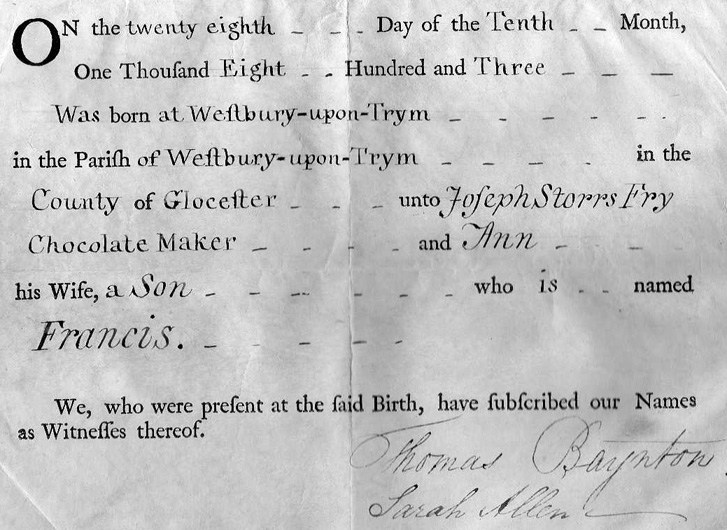 ON the twenty eighth _ _ _ Day of the Tenth _ _ Month,
One Thouſand Eight _ _ Hundred and Three _ _ _
Was born at Weſtbury-upon-Trym _ _ _ _ _
in the Pariſh of Weſtbury-upon-Trym _ _ _ _ in the
County of Gloceſter _ _ _ unto Joſeph Storrs Fry
Chocolate Maker _ _ _ _ and Ann _ _
his Wife, a Son _ _ _ _ _ _ who is _ _ named
Francis. _ _ _ _ _
We, who were preſent at the ſaid Birth, have ſubſcribed our Names
as Witneſſes thereof.
Thomas Baynton
Sarah Allen